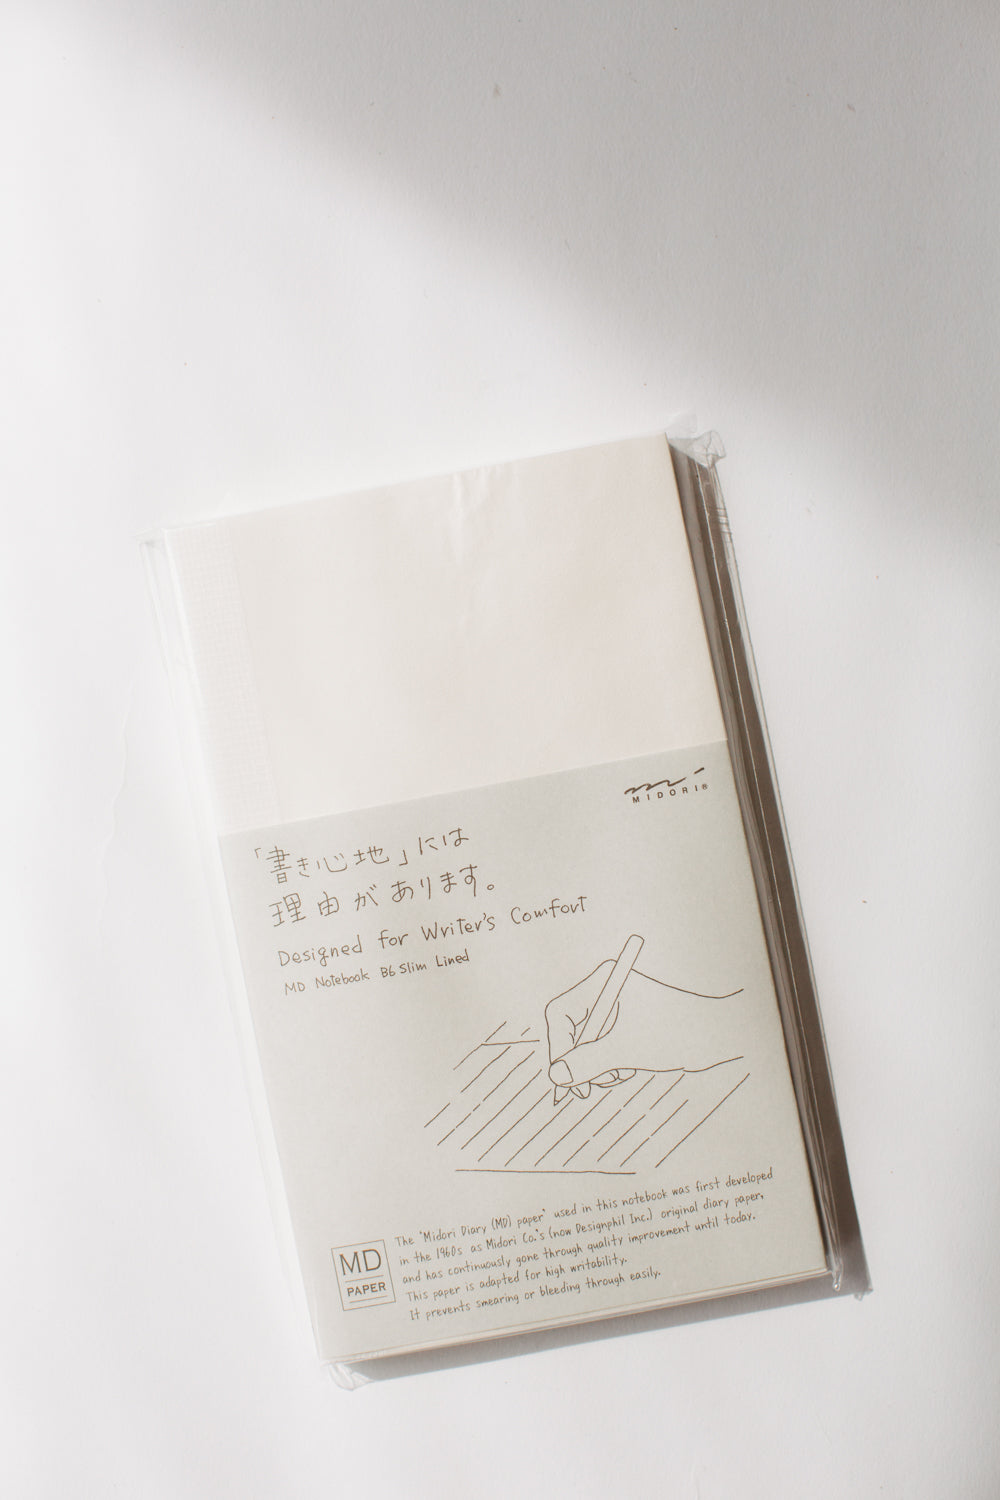 MIDORI®
「書き心地」には
理由があります。
Designed for Writer's Comfort
MD Notebook B6 Slim Lined
The 'Midori Diary (MD) paper' used in this notebook was first developed
in the 1960s as Midori Co.'s (now Designphil Inc.) original diary paper,
and has continuously gone through quality improvement until today.
This paper is adapted for high writability.
It prevents smearing or bleeding through easily.
MD
PAPER